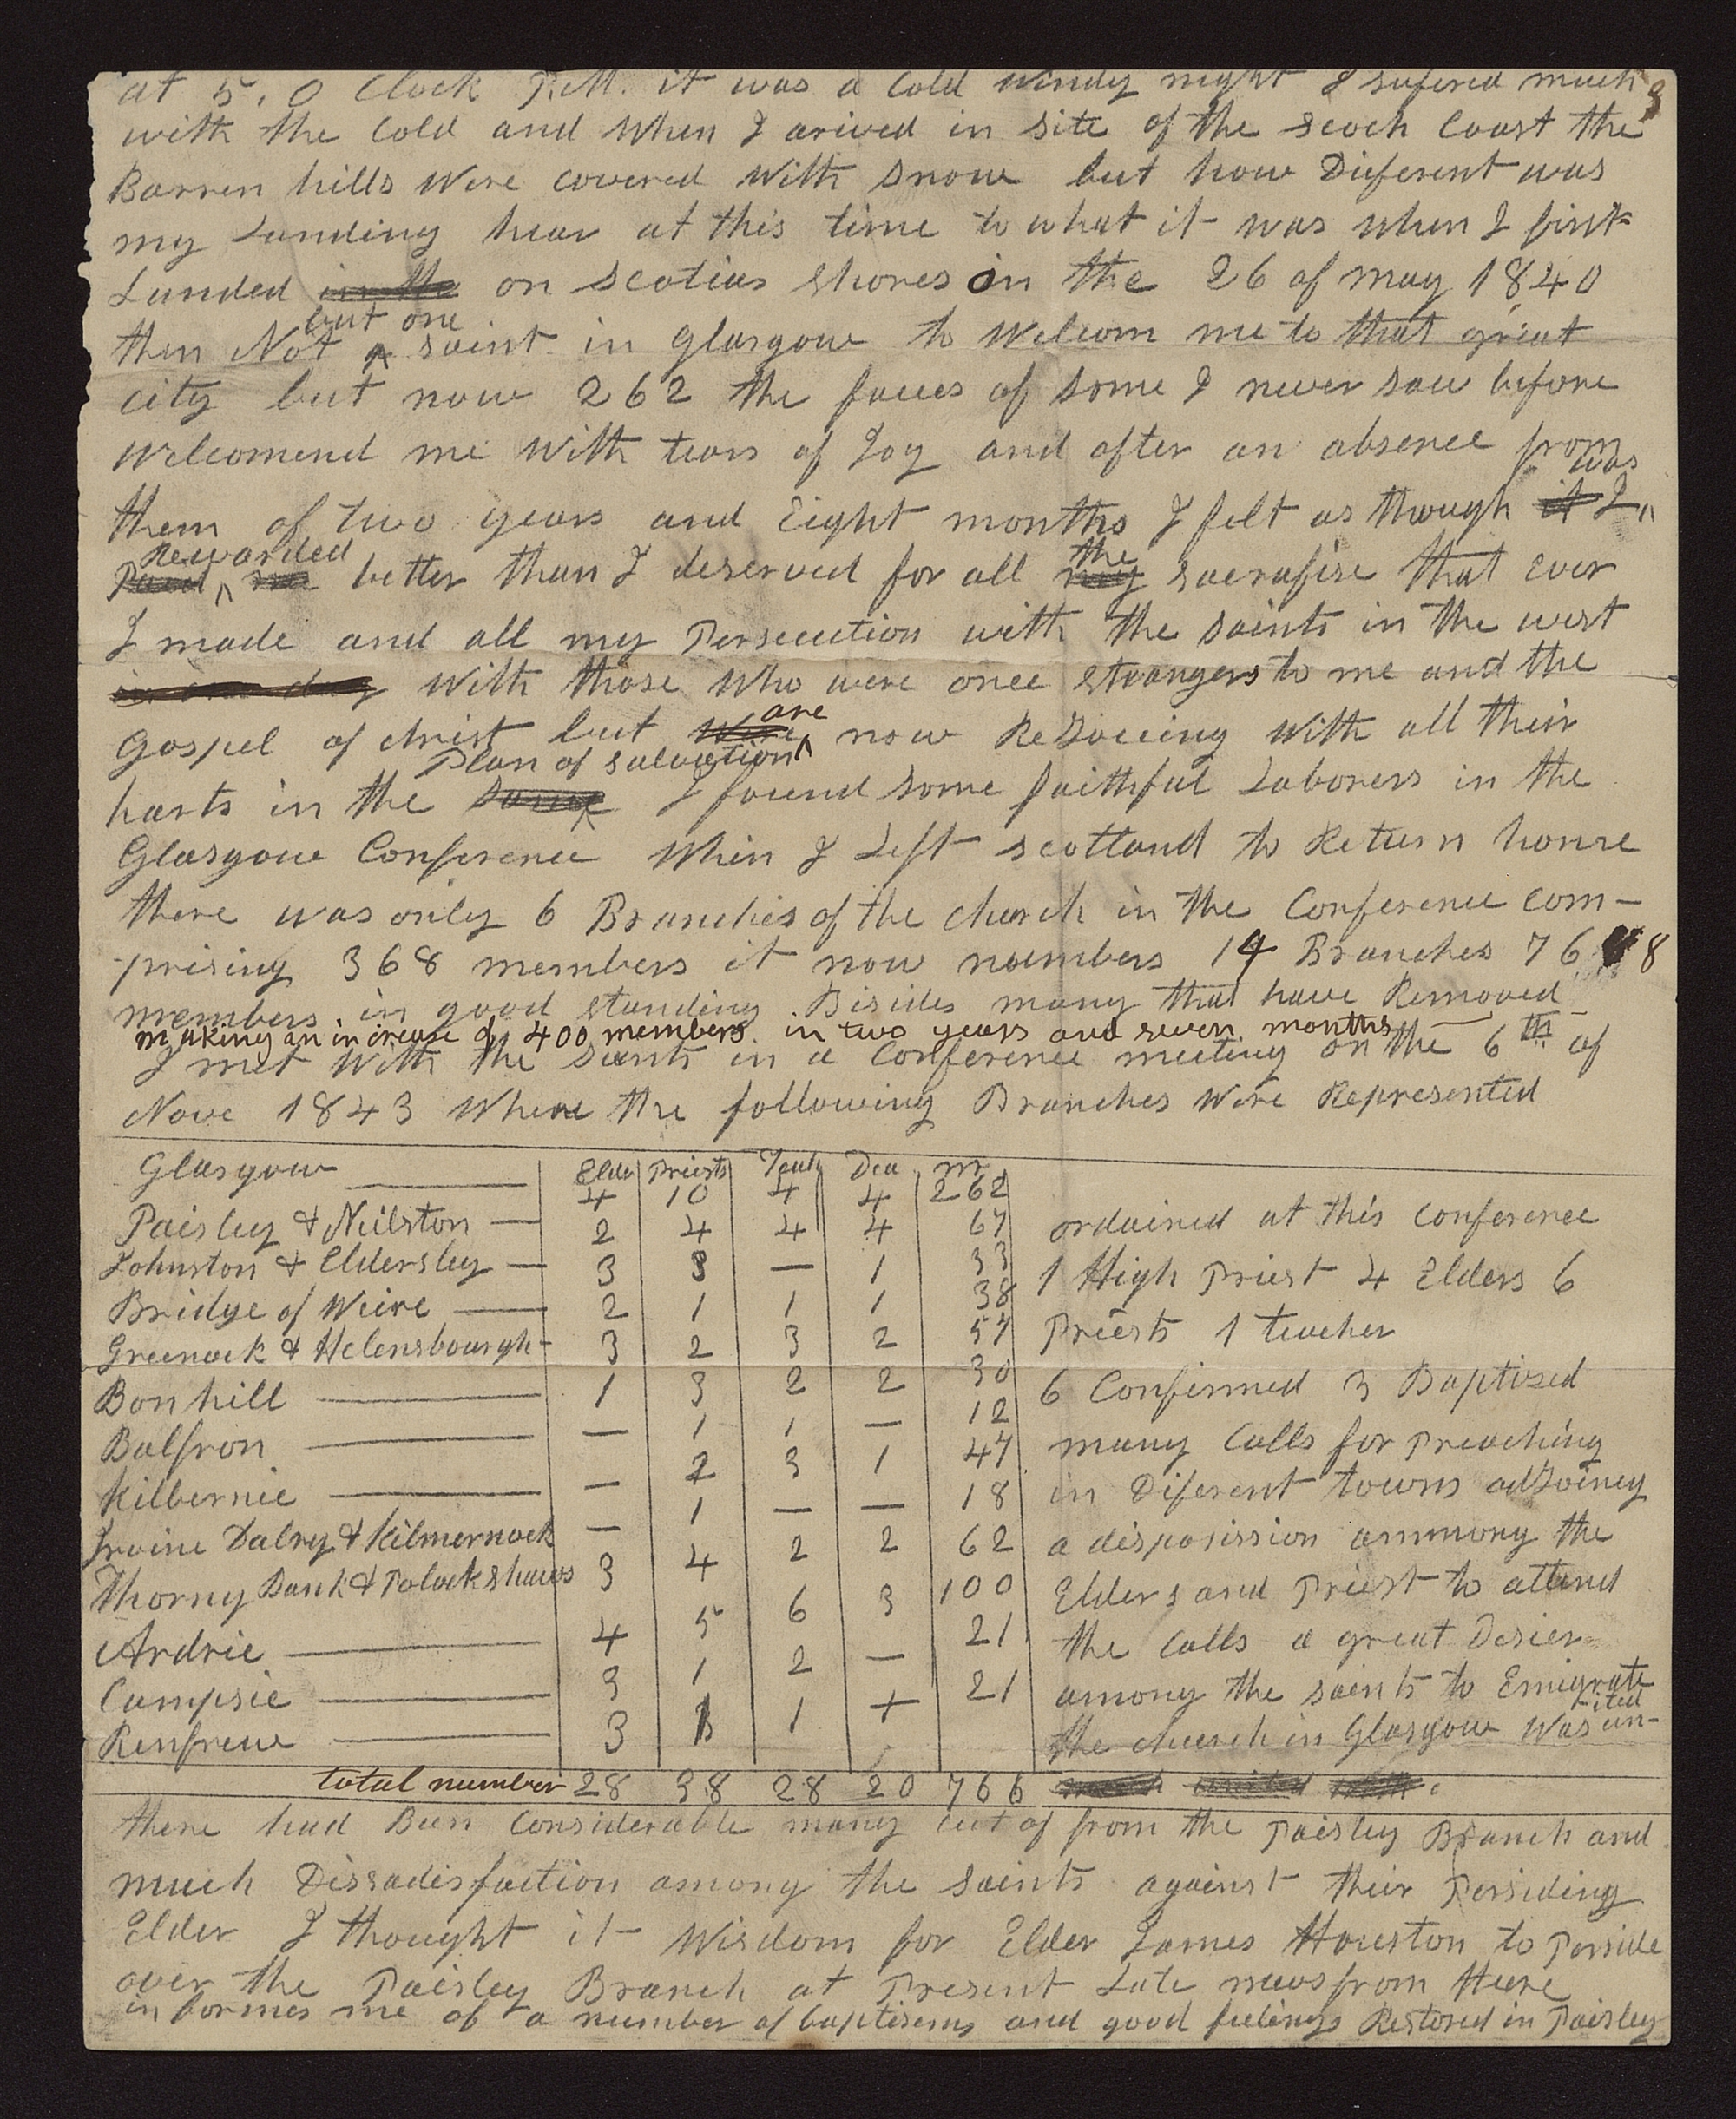 at 5.0 Clock P.M. it was a Cold windy night I sufered much
3
with the Cold and when I arived in site of the scoch Coast the
Barren hills were covered with snow but how Diferent was
my Landing hear at this time to what it was when I first
Landed in the on Scotias shores on the 26 of may 1840
but one
then Not ^ saint in Glasgow to welcom me to that great
city but now 262 the faces of some I never saw before
welcomend me with tears of Joy and after an absence from
was
them of two years and Eight months I felt as though it I ^
Rewarded the
Paid ^ me better than I deserved for all my sacrafise that Ever
I made and all my Persecution with the saints in the west
in one day with those who were once strangers to me and the
are
Gospel of christ but were ^ now ReJoicing with all their
Plan of salvation
harts in the same ^ I found some faithful Laborers in the
Glasgow Conference when I Left scotland to Return home
there was only 6 Branches of the church in the Conference com-
-prising 368 members it now numbers 14 Branches 76 8
members in good standing Besides many that have Removed
making an increase of 400 members in two years and seven months
I met with the saints in a Conference meeting on the 6th of
Nove 1843 where the following Branches were Represented
Elde Priests Teach Dea m
Glasgow 4 10 4 4 262
Paisley & Neilston 2 4 4 4 67
Johnston & Eldersley 3 3 — 1 33
Bridge of Weire 2 1 1 1 38
Greenock & Helensbourgh 3 2 3 2 57
Bonhill 1 3 2 2 30
Balfron — 1 1 — 12
Kilbernie — 2 3 1 47
Irvine Dalry & Kilmernock — 1 — — 18
Thorny Bank & Polockshaws 3 4 2 2 62
Ardrie 4 5 6 3 100
Campsie 3 1 2 — 21
Renfrew 3 1 1 + 21
total number 28 38 28 20 766
ordained at this conference
1 High Priest 4 Elders 6
Priests 1 teacher
6 Confirmed 3 Baptised
many Calls for Preaching
in Diferent towns adJoiney
a disposission ammong the
Elders and Priest to attend
the Calls a great Desier
among the saints to Emigrate
the church in Glasgow was un-
ited
there had Been Considerable many cut of from the Paisley Branch and
much Dissadisfaction among the saints against their Persiding
Elder I thought it wisdom for Elder James Houston to Perside
over the Paisley Branch at Present Late news from there
informes me of a number of baptisems and good feelings Restored in Paisley